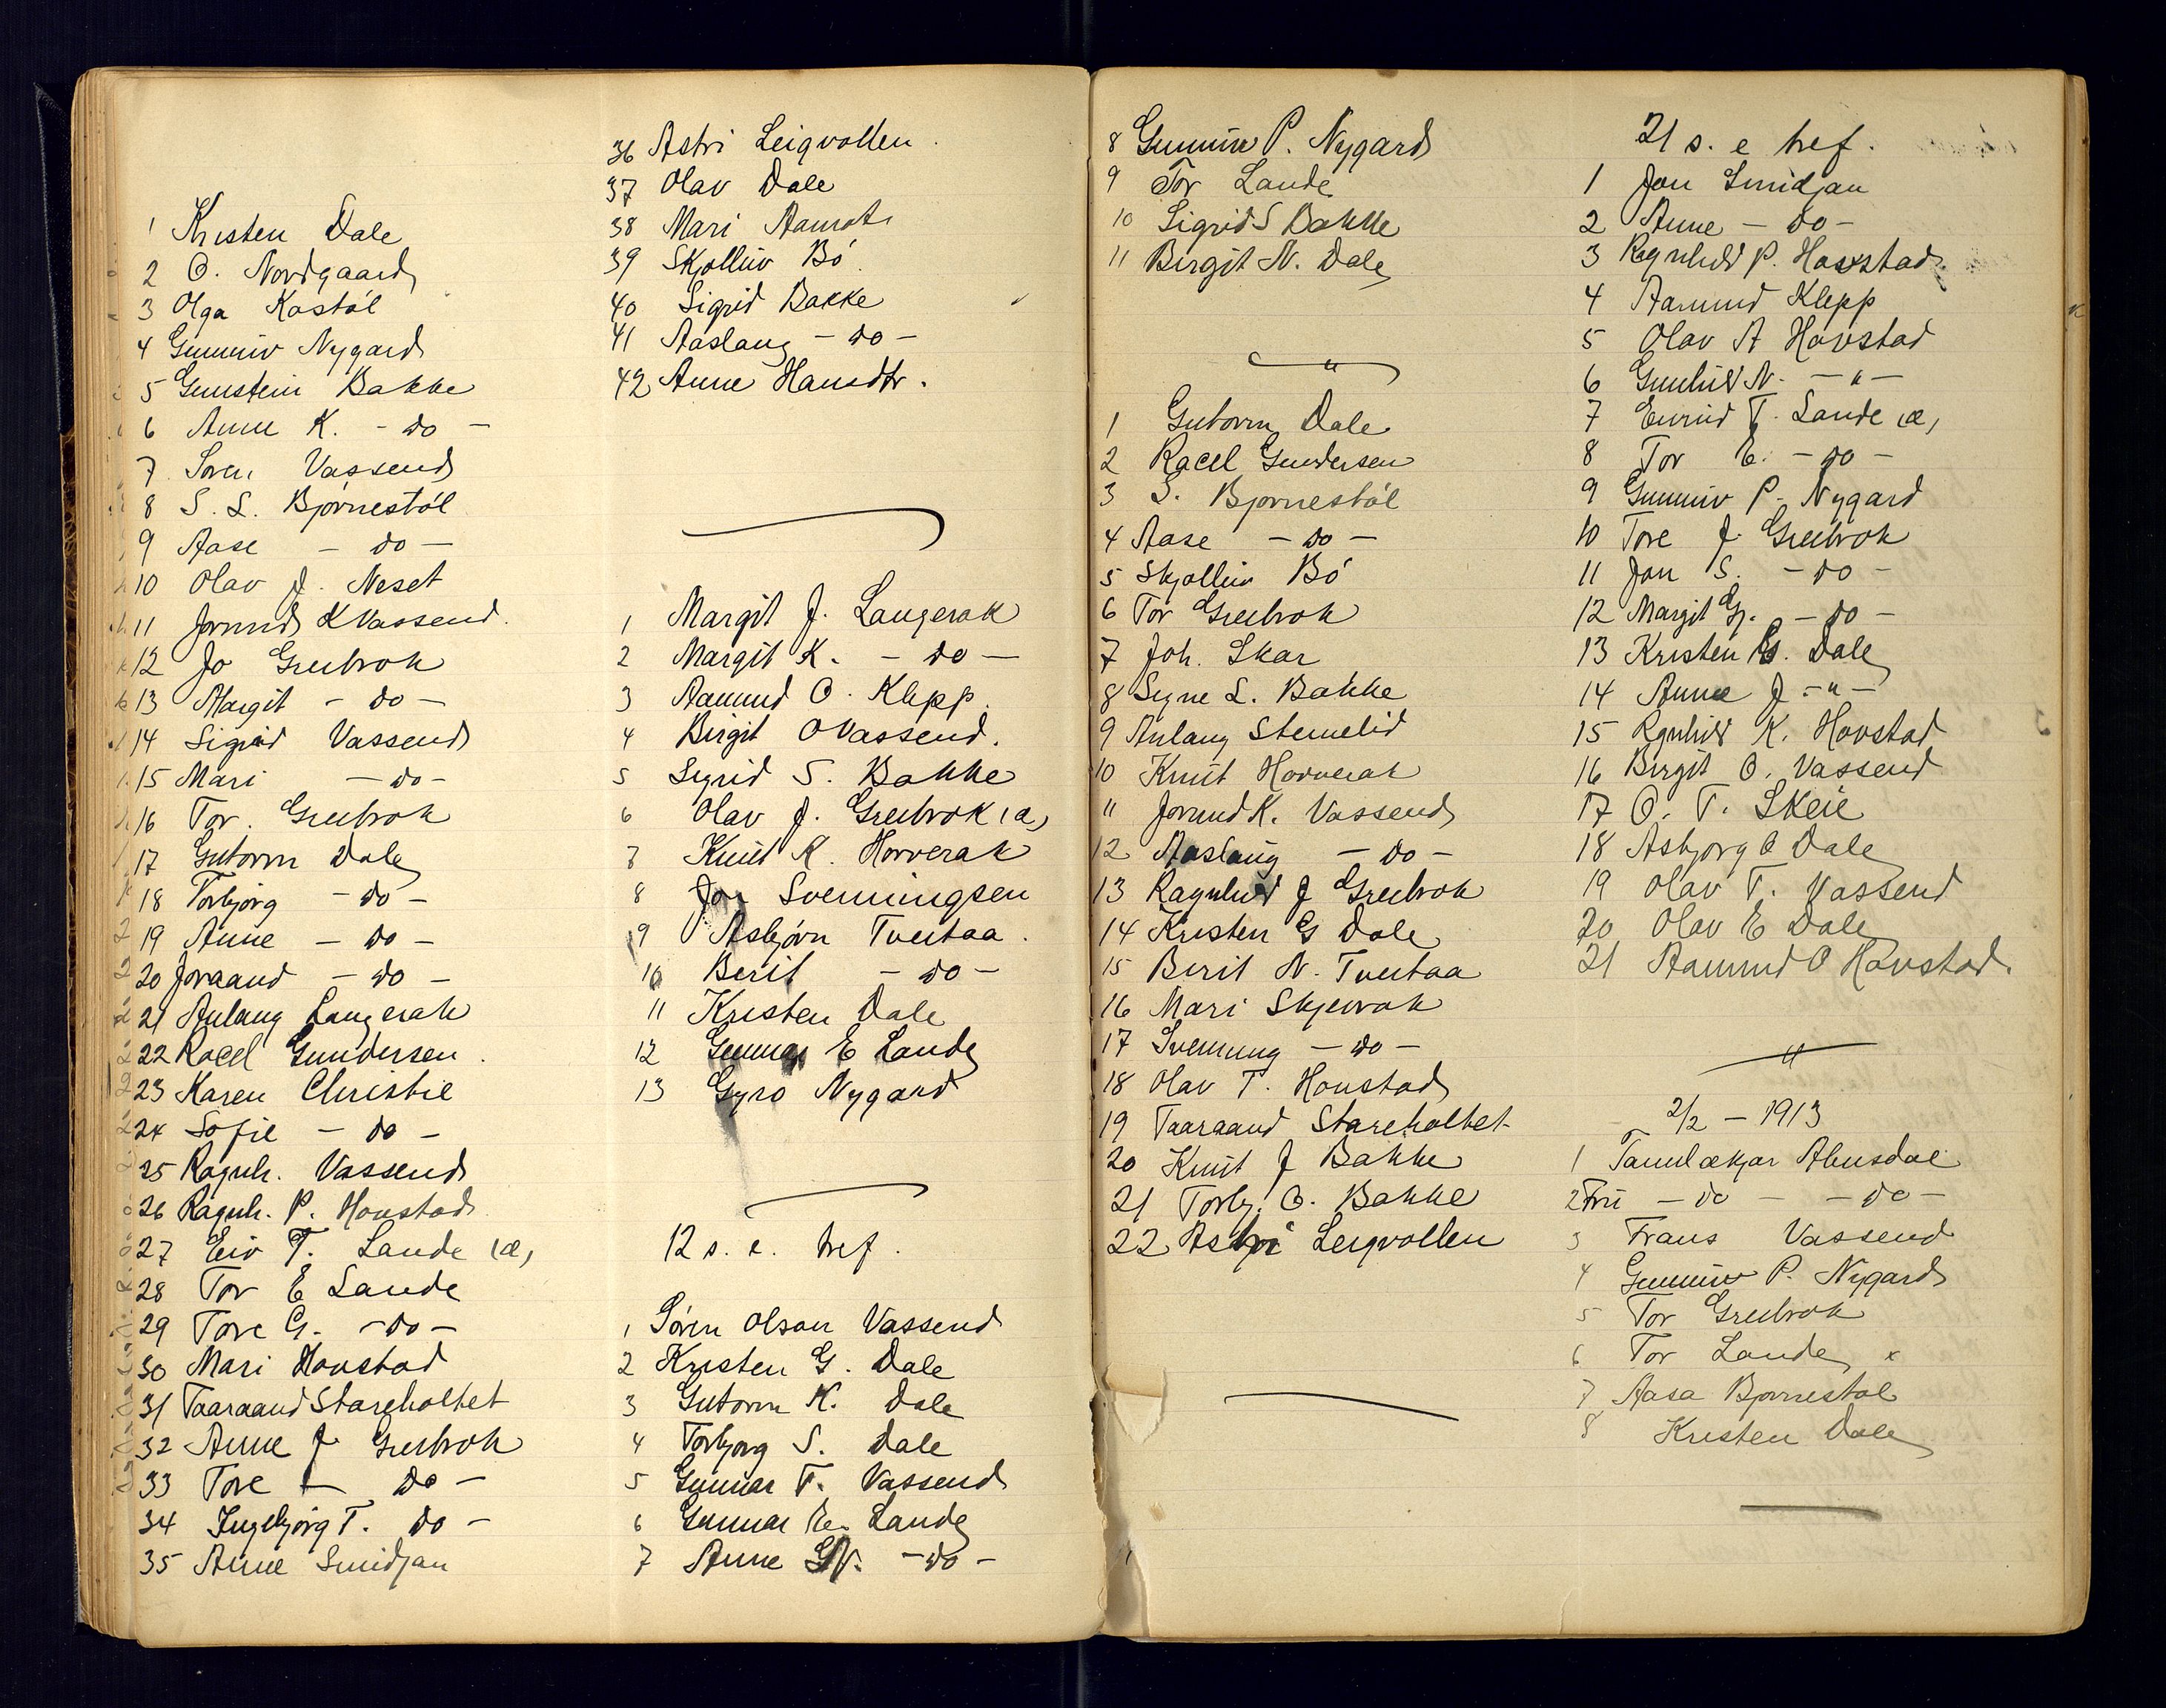 1 Kristen Dale
2 O. Nordgaard
3 Olga Kastöl
4 Gunnüv Nygard
5 Gunstein Bakke
6 Anne K. - do -
7 Soren Vassend
8 S. L. Bjørnestöl
9 Aase - do -
10 Olav J. Neset
11 Jorund K Vassend.
12 Jo Greibrok
13 Margit - do -
14 Sigrid Vassend
15 Mari - do -
16 Tor. Greibrok
17 Gutorm Dale
18 Torbjørg - do -
19 Anne - do -
20 Joraand - do -
21 Aulaug Langerak
22 Racel Gundersen.
23 Karen Christie
24 Sofie - do -
25 Ragnh. Vassend
26 Ragnh. P. Hovstad
27 Eiv T. Lande (æ)
28 Tor E Lande
29 Tore G. - do -
30 Mari Hovstad
31 Taaraand Stareholtet
32 Anne J Greibrok
33 Tore - do -
34 Ingebjørg T. do -
35 Anne Smidjan
36 Astri Leigvollen.
37 Olav Dale
38 Mari Aamot
39 Skjolluv Bö
40 Sigrid Bakke
41 Aaslaug - do -
42 Anne Hansdtr.
1 Margit J. Langerak
2 Margit K. - do -
3 Aamund O. Klepp.
4 Birgit O Vassend.
5 Sigrid S. Bakke
6 Olav J. Greibrok (æ)
7 Knut K. Horverak
8 Jon Svenningsen
9 Asbjørn Tveitaa.
10 Berit - do -
11 Kristen Dale
12 Gunnar E Lande
13 Gyro Nygard
12 s. e. tref.
1 Søren Olson Vassend
2 Kristen G. Dale
3 Gutorm K. Dale
4 Torbjorg S. Dale
5 Gunnar T. Vassend
6 Gunnar E. Lande
7 Anne - do -
8 Gunnüv P. Nygard
9 Tor Lande
10 Sigrid S Bakke
11 Birgit N. Dale
"
1 Gutorm Dale
2 Racel Gundersen
3 S. Bjornestöl
4 Aase - do -
5 Skjolluv Bö
6 Tor Greibrok
7 Joh. Skar
8 Signe L. Bakke
9 Aulaug Stemelid
10 Knut Horverak
11 Jorund K. Vassend
12 Aaslaug - do -
13 Ragnhild J Greibrok
14 Kristen G Dale
15 Berit N. Tveitaa
16 Mari Skjevrak
17 Svenung - do -
18 Olav T. Hovstad
19 Taaraand Stareholtet
20 Knut J Bakke
21 Torbj. O. Bakke
22 Astri Leigvollen
21 s. e tref.
1 Jon Smidjan
2 Anne - do -
3 Ragnhild P. Hovstad
4 Aamund Klepp
5 Olav A Hovstad
6 Gunhild N. - " -
7 Eivind T. Lande (æ)
8 Tor E. - do -
9 Gunnuv P. Nygard
10 Tore J Greibrok
11 Jon S. - do -
12 Margit G. - do -
13 Kristen G. Dale
14 Anne J - " -
15 Rgnhild K. Hovstad
16 Birgit O. Vassend
17 O. T. Skeie
18 Asbjorg O Dale
19 Olav T. Vassend
20 Olav E Dale
21 Aamund O Hovstad.
"
2/2 - 1913
1 Tannlækjar
2 Fru - do - - do -
3 Frans Vassend
4 Gunnuv P. Nygard
5 Tor Greibrok
6 Tor Lande x
7 Aasa Bjornestøl
8 Kristen Dale